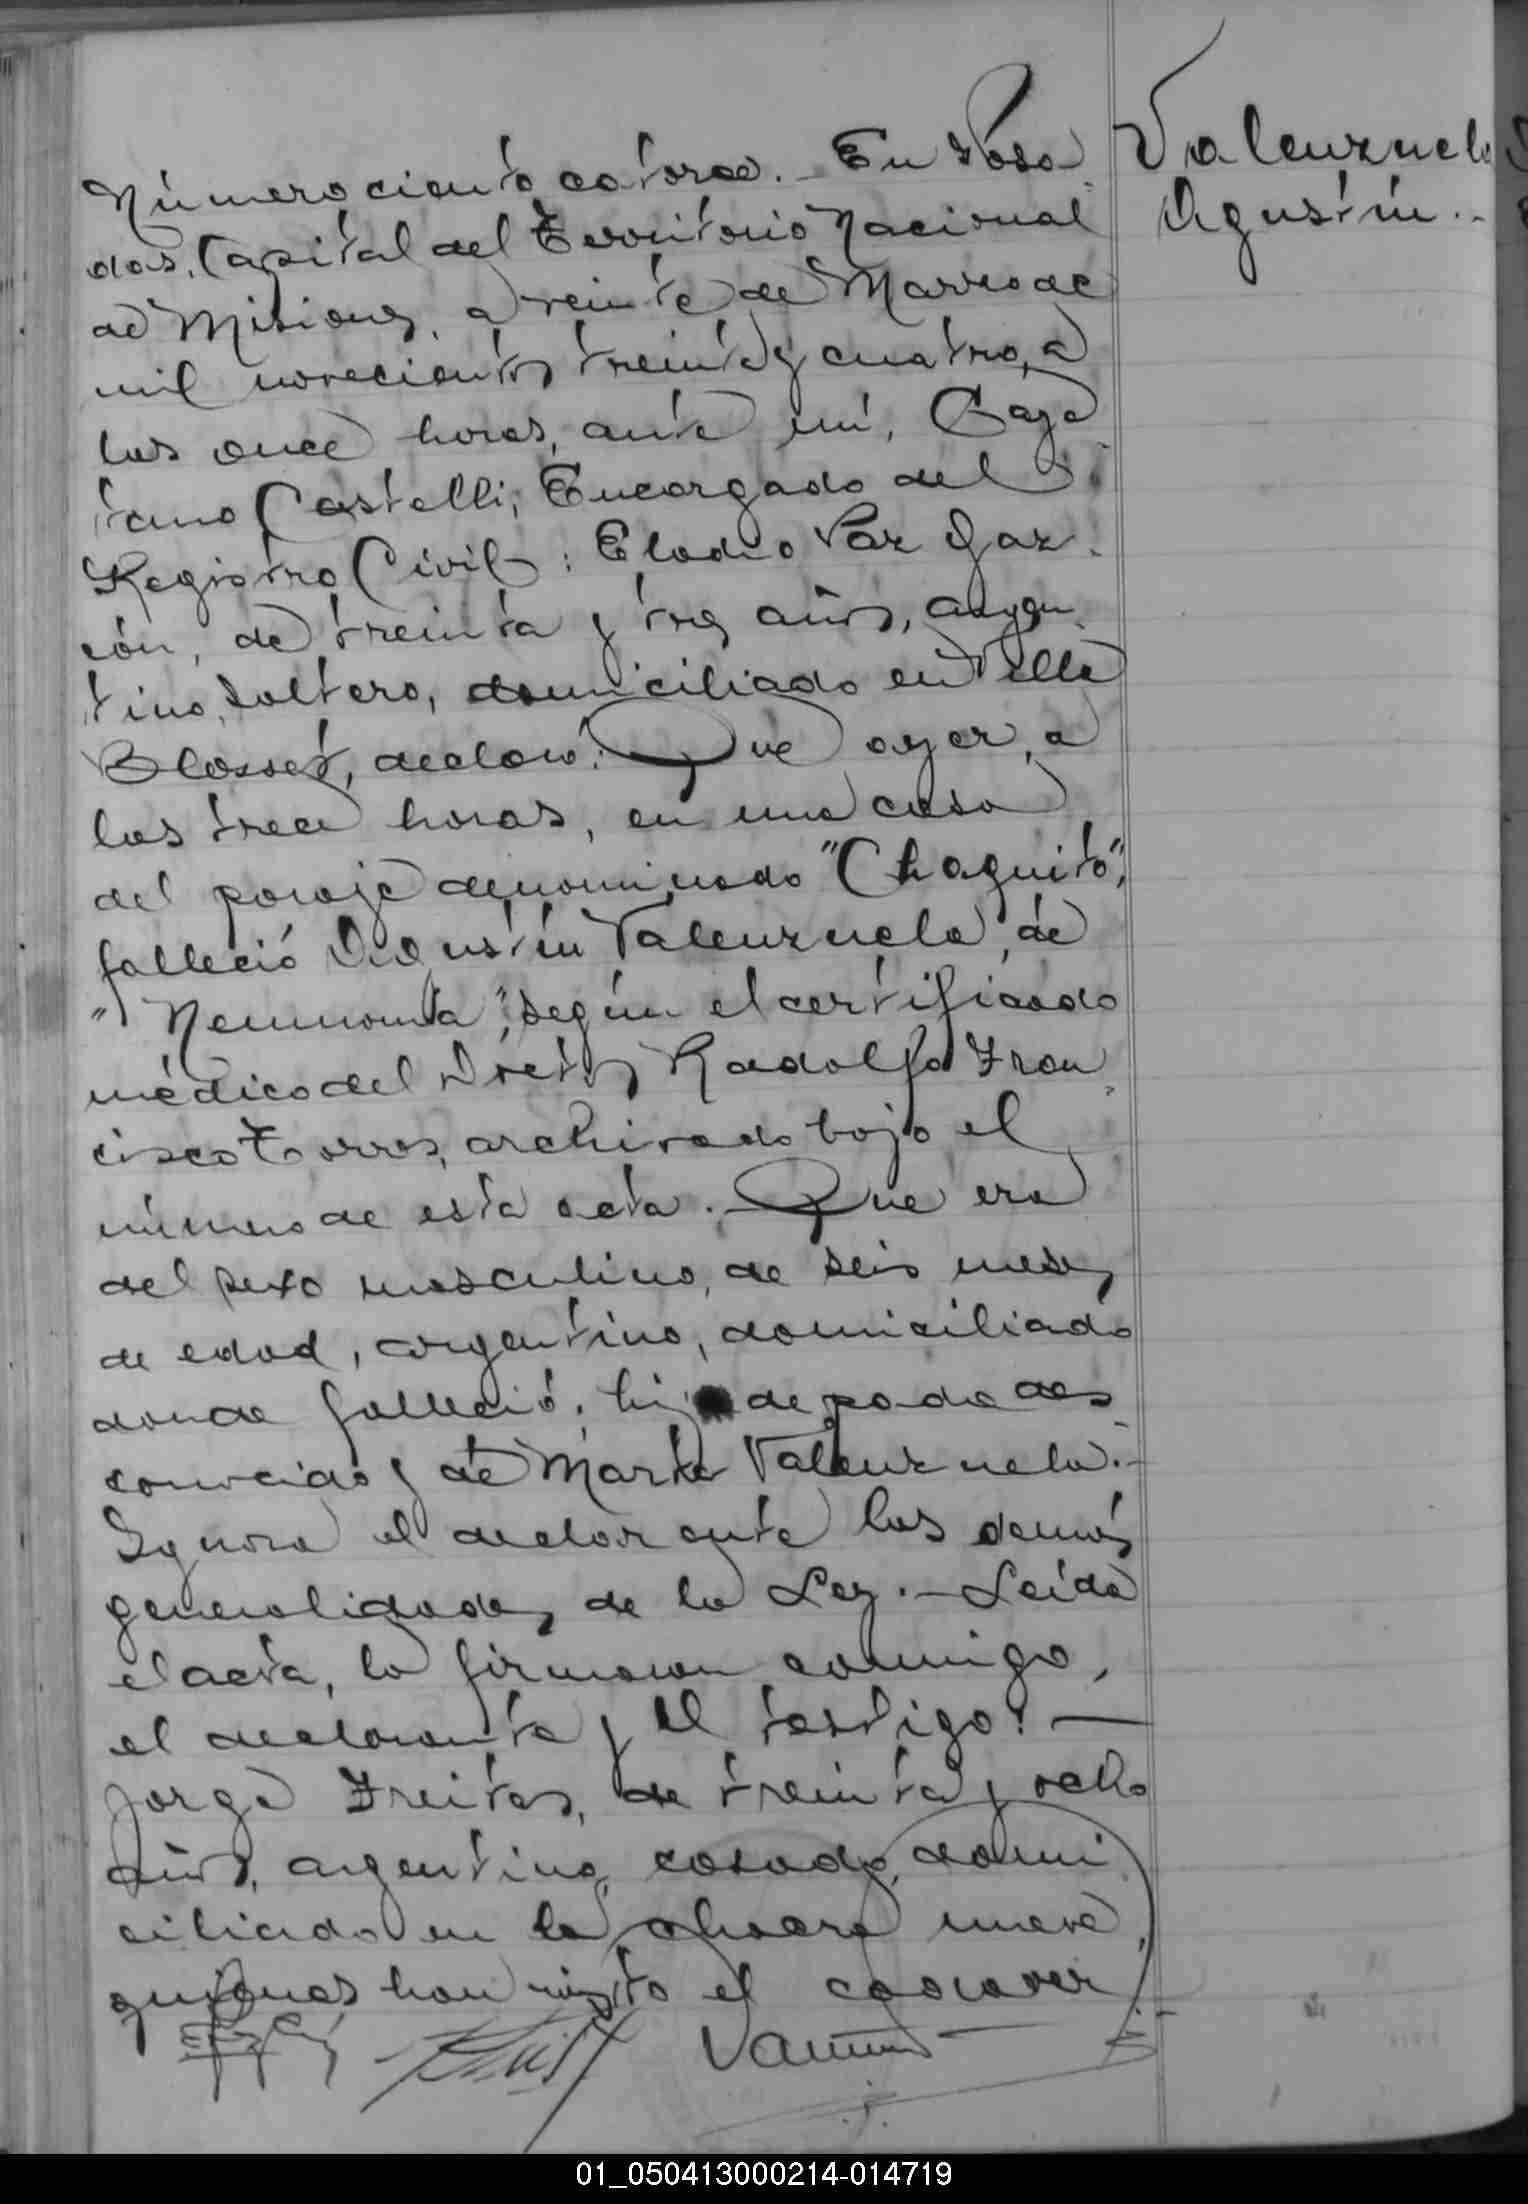 Valenzuela
Agustín.-
Número ciento catorce.- En Posa
das, Capital del Territorio Nacional
de Misiones, a veinte de Marzo de
mil novecientos treinta y cuatro, a
las once horas, ante mí, Caye
tano Castelli, Encargado del
Registro Civil: Eladio Paz Gar
zón, de treinta y tres años, argen
tino, soltero, domiciliado en Villa
Blosset, declaró: Que ayer, a
las trece horas, en una casa
del paraje denominado "Chaquito",
falleció Agustín Valenzuela, de
"Neumonía", según el certificado
médico del Doctor Radolfo Fran
cisco Torres, archivado bajo el
número de esta acta.- Que era
del sexo masculino, de seis meses
de edad, argentino, domiciliado
donde falleció, hijo de padre des
conocido y de María Valenzuela.-
Ignora el declarante las demás
generalidades de la Ley.- Leída
el acta, la firmaron conmigo,
el declarante y el testigo:-
Jorge Freitas, de treinta y ocho
años, argentino, casado, domi
ciliado en la chacra nueve,
quienes han visto el cadaver.-
01_050413000214-014719